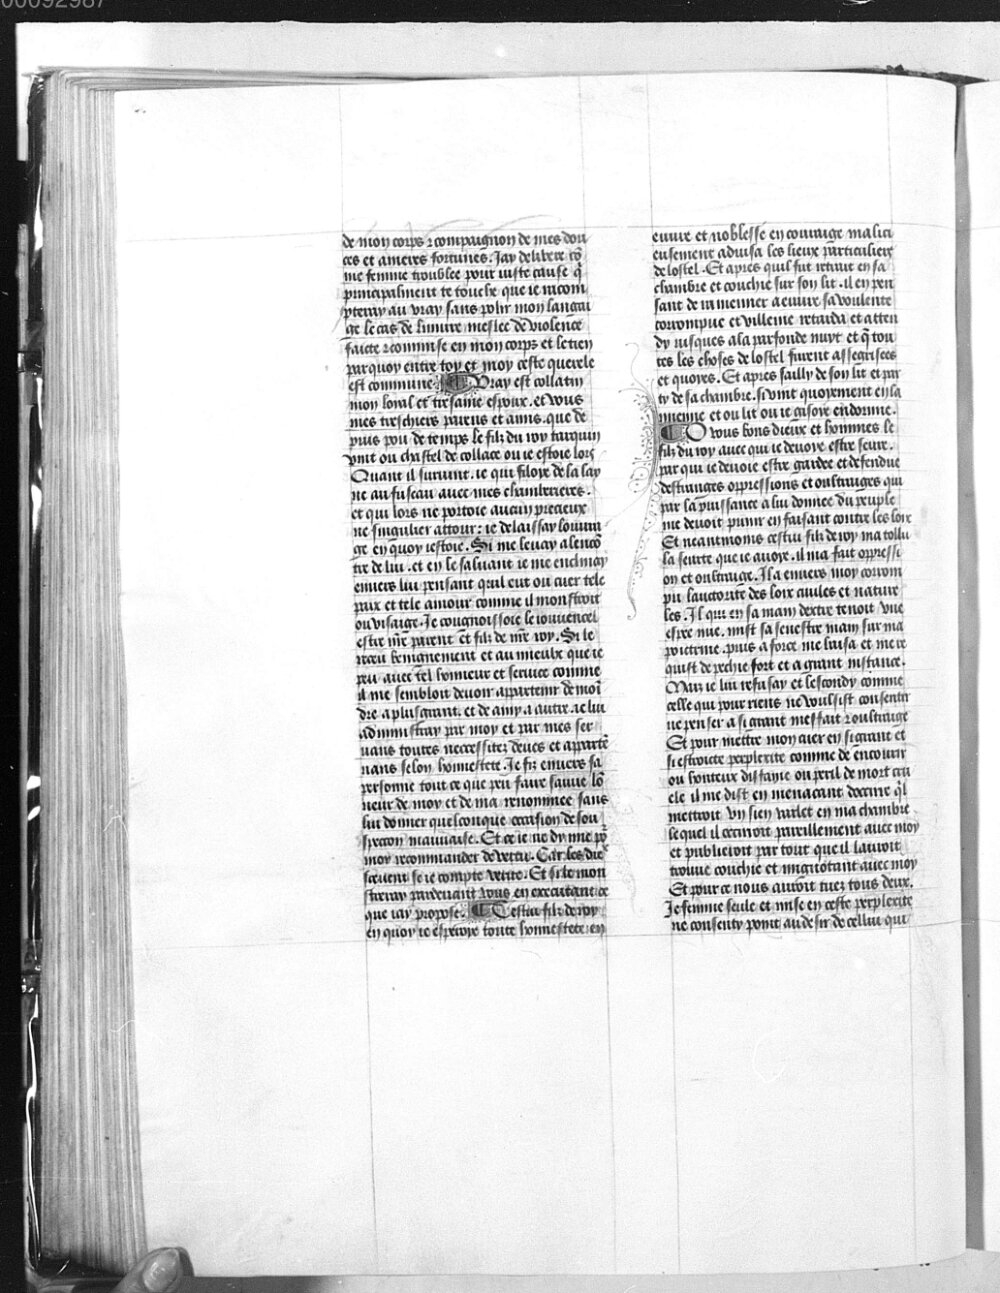 00092987
de mon corps ⁊ compaignon de mes doul
ces et ameres fortunes. Jay delibere cō
me femme troublee pour iuste cause q̄
principalment te touche que ie racom
pteray au vray sans polir mon langai
ge le cas de liniure meslee de violence
faicte ⁊ commise en mon corps et le tien
par quoy entre toy et moy ceste querele
est commune. ¶ Vray est collatin
mon loyal et tresame espoux. et vous
mes treschiers parens et amis. que de
puis pou de temps le filz du roy tarquin
vint ou chastel de collace ou ie estoie lors
Quant il suruint. ie qui filoye de la lay
ne au fuseau auec mes chamberieres.
et qui lors ne portoie aucun precieux
ne singulier attour: ie delaissay louura
ge en quoy iestoie. Si me leuay alencō
tre de lui. et en le saluant ie me enclinay
enuers lui pensant quil eut ou cuer tele
paix et tele amour comme il monstroit
ou visaige. Je congnoissoie le iouuencel
estre mr̄e parent et filz de mr̄e roy. Si le
receu benignement et au mieulx que ie
peu auec tel honneur et seruice comme
il me sembloit deuoir appartenir de moī
dre a plus grant. et de amy a autre. ie lui
administray par moy et par mes ser
uans toutes necessitez deues et apparte
nans selon honnestete. Je fiz enuers sa
personne tout ce que peu faire sauue lō
neur de moy et de ma renommee sans
lui donner quelconque occasion de sou
specon mauuaise. Et ce ie ne dy mie po
moy recommander de vertu. Car les die
sceuent se ie compte verite. Et si le mon
streray pardeuant vous en executant ce
que iay propose. ¶ Cestui filz de roy
en quoy ie esperoye toute honnestete en
euure et noblesse en couraige malici
eusement aduisa les lieux particuliers
de lostel. Et apres quil fut retrait en sa
chambre et couchie sur son lit. il en pen
sant de ramener a euure sa voulente
corrompue et villeine retarda et atten
dy iusques a la parfonde nuyt et q̄ tou
tes les choses de lostel furent assegrisees
et quoyes. Et apres sailly de son lit et par
ty de sa chambre. si vint quoyement en la
mienne et ou lit ou ie gisoye endormie.
¶ O vous bons dieux et hommes le
filz du roy auec qui ie deuoye estre seure.
par qui ie deuoie estre gardee et defendue
destranges oppressions et oultraiges qui
par la puissance a lui donnee du peuple
me deuoit punir en faisant contre les loix
Et neantmoins cestui filz de roy ma tollu
la seurte que ie auoye. il ma fait oppressi
on et oultraige. Il a enuers moy corrom
pu lauctorite des loix ciuiles et nature
les. Il qui en sa main dextre tenoit vne
espee nue. mist sa senestre main sur ma
poictrine. puis a force me baisa et me re
quist de pechie fort et a grant instance.
Mais ie lui refusay et lescondy comme
celle qui pour riens ne voulsist consentir
ne penser a si grant meffait ⁊ oultraige
Et pour mettre mon cuer en si grant et
si estroicte perplexite comme de encourir
ou honteux diffame ou peril de mort cru
ele il me dist en menacant
mettroit vn sien varlet en ma chambre
lequel il occiroit pareillement auec moy
et publieroit par tout que il lauroit
trouue couchie et mignotant auec moy
Et pour ce nous auroit tuez tous deux.
Je femme seule et mise en ceste perplexite
ne consenty point au desir de cellui qui